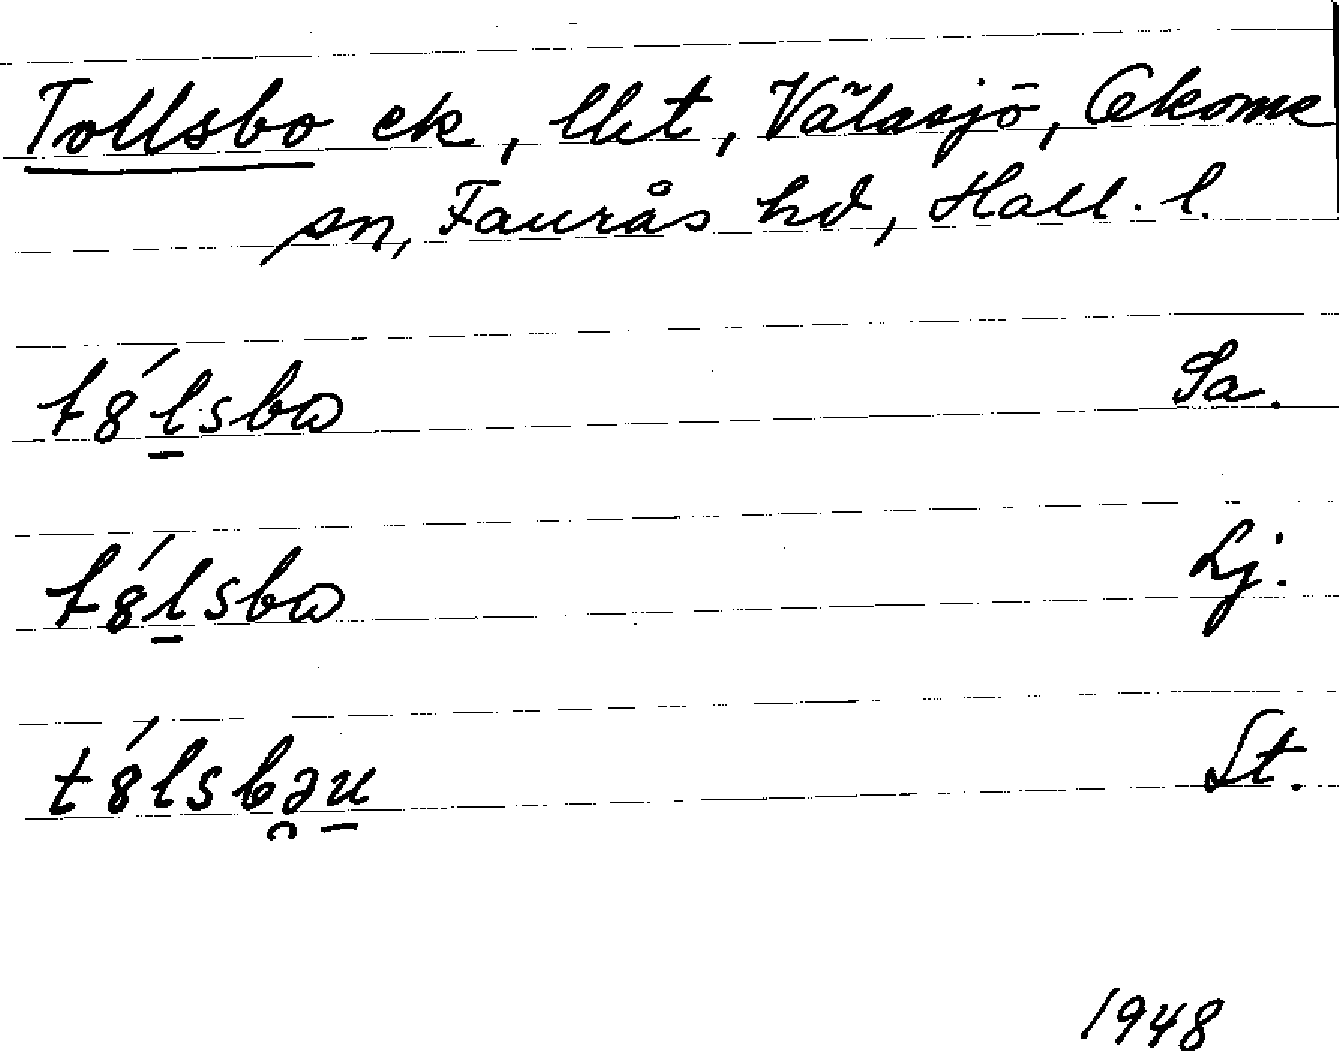 Tollsbo ek, lht, Välasjö, Okome
sn, Faurås hd, Hall. l.
t8́lsbɷ Sa.
t8́lsbɷ Lj.
t8́lsbəu St.
1948